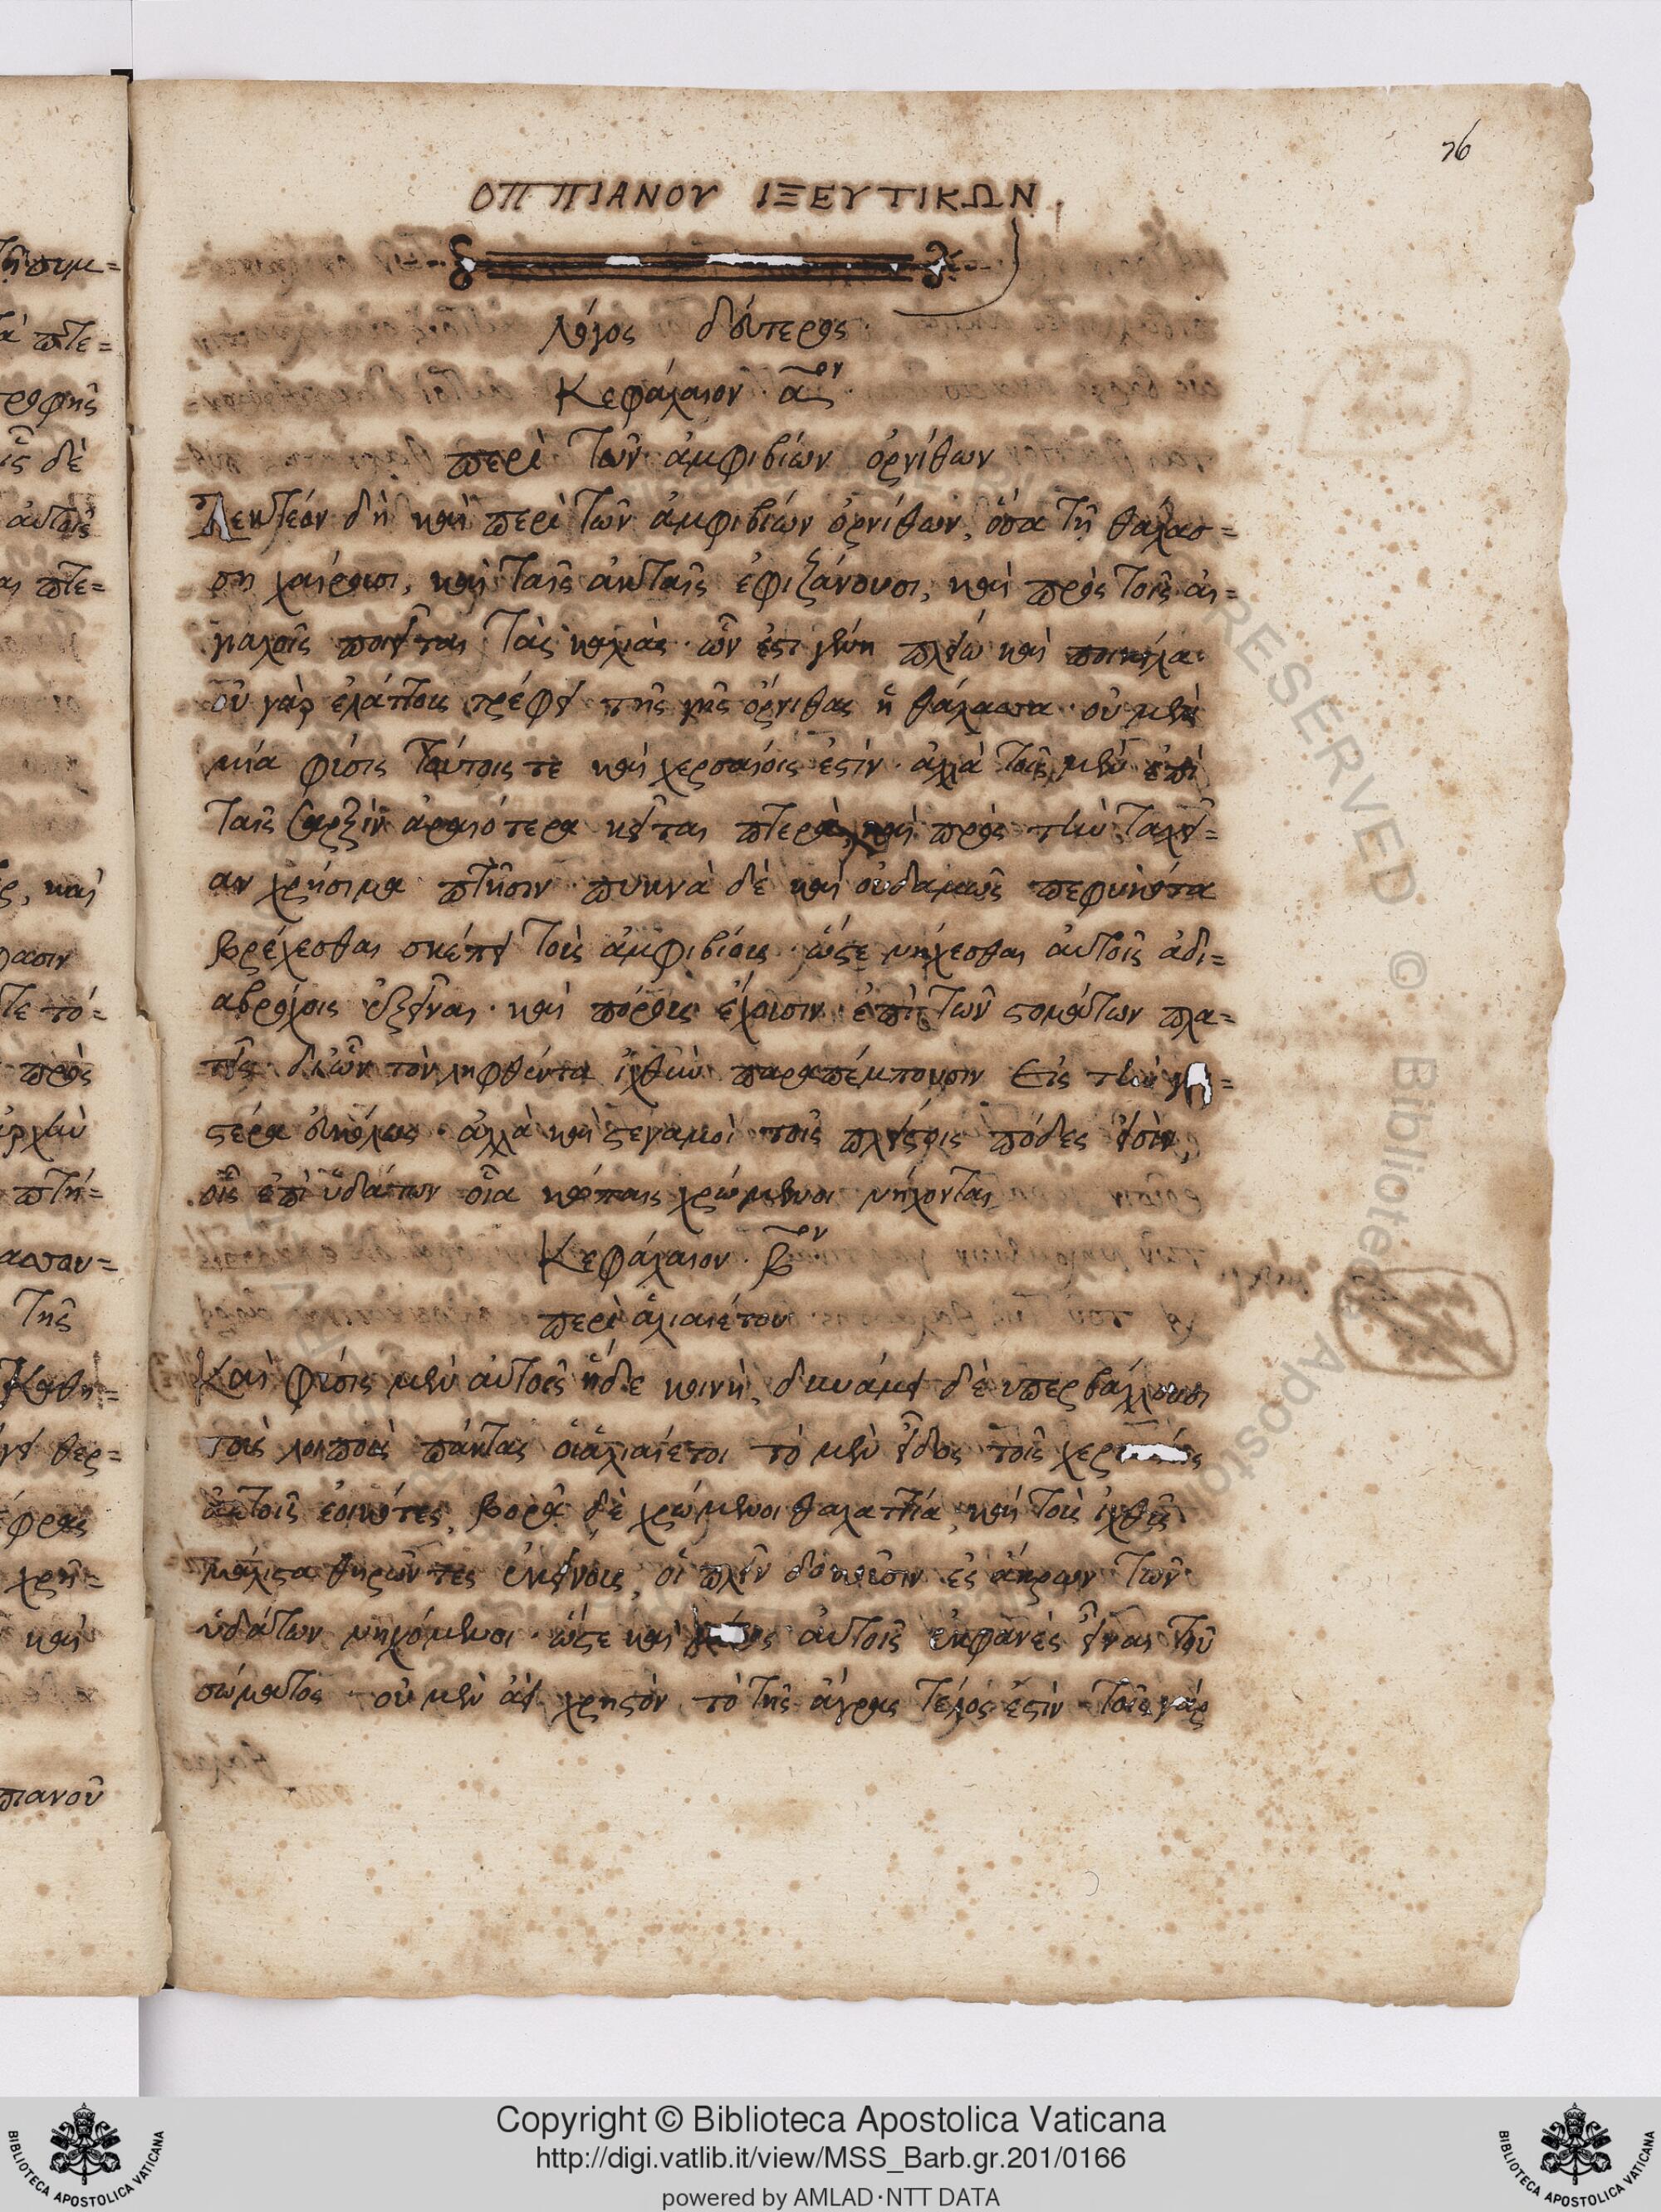 76
ΟΠΠΙΑΝΟΥ ΙΞΕΥΤΙΚΩΝ.
λόγος δεύτερος
Κεφάλαιον α ον
περὶ τῶν ἀμφιβίων ὀρνίθων
Λεκτέον δὴ καὶ περὶ τῶν ἀμφιβίων ὀρνίθων, ὅσα τῇ θαλάσ=
ση χαίρουσι, καὶ ταῖς ἀκταῖς ἐφιζάνουσι, καὶ πρὸς τοῖς αἰ=
γιαλοῖς ποιεῖται τὰς καλιάς. ὧν ἐστι γένη πλείω καὶ ποικίλα.
οὐ γὰρ ἐλάττους τρέφει τῆς γῆς ὄρνιθας ἡ θάλασσα. οὐ μὲν
μία φύσις τούτοις τε καὶ χερσαίοις ἐστίν. ἀλλὰ τοῖς μὲν ἐπὶ
ταῖς σαρξὶν ἀραιότερα κεῖται πτερὰ, καὶ πρὸς τὴν ταχεῖ=
αν χρήσιμα πτῆσιν. πυκνὰ δὲ καὶ οὐδαμῶς πεφυκότα
βρέχεσθαι σκέπει τοὺς ἀμφιβίους. ὥστε νήχεσθαι αὐτοῖς ἀδι=
αβρόχοις ἐξεῖναι. καὶ πόρους ἔχουσιν ἐπὶ τῶν στομάτων πλα=
τεῖς δι' ὧν τὸν ληφθέντα ἰχθὺν παραπέμπουσιν εἰς τὴν γα=
στέρα εὐκόλως. ἀλλὰ καὶ στεγανοὶ τοῖς πλείστοις πόδες εἰσὶν,
οἷς ἐπὶ ὑδάτων οἷα κώπαις χρώμενοι νήχονται
Κεφάλαιον. β ον
περὶ ἁλιαιέτου
Καὶ φύσις μὲν αὐτοῖς ἥδε κοινὴ, δυνάμει δὲ ὑπερβάλλουσι
τοὺς λοιποὺς πάντας οἱ ἁλιαίετοι τὸ μὲν εἶδος τοῖς
ἀετοῖς ἐοικότες, βορᾷ δὲ χρώμενοι θαλαττίᾳ, καὶ τοὺς ἰχθῦς
μάλιστα θηρῶντες ἐκείνους, οἳ πλεῖν δοκοῦσιν ἐς ἄκρων τῶν
ὑδάτων νηχόμενοι. ὥστε καὶ αὐτοῖς ἐκφανὲς εἶναι τοῦ
σώματος. οὐ μὲν ἀεὶ χρηστὸν τὸ τῆς ἄγρας τέλος ἐστὶν. τοῖς γὰρ
Copyright © Biblioteca Apostolica Vaticana
http://digi.vatlib.it/view/MSS_Barb.gr.201/0166
powered by AMLAD·NTT DATA
BIBLIOTECA APOSTOLICA VATICANA
BIBLIOTECA APOSTOLICA VATICANA